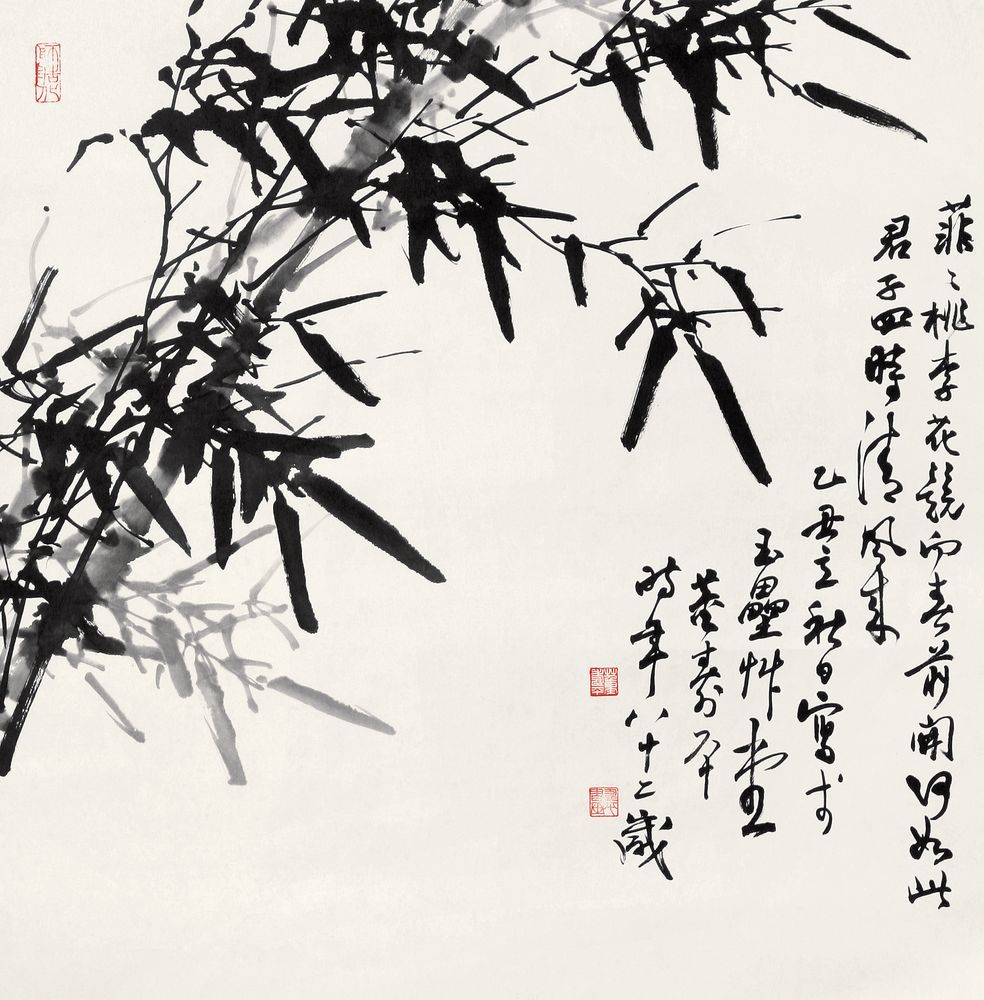 菲〻桃李花競向春前開何如此
君子四時清風來
乙丑立秋日寫於
玉壘草堂
董壽平
時年八十二歲